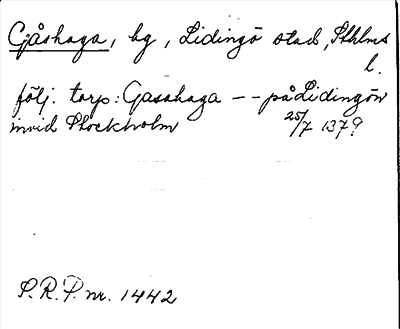 Gåshaga, hg, Lidingö stad, Sthlms
l.
följ. torp: Gasahaga -- på Lidingön
invid Stockholm 25/7 1379
S.R.P. nr. 1442